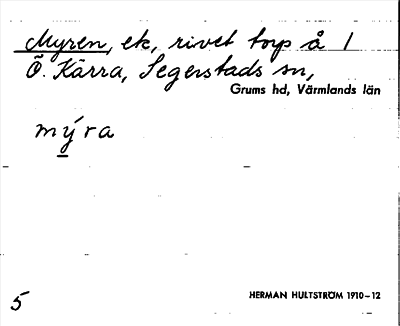 Myren, ek, rivet torp å 1
Ö. Kärra, Segerstads sn,
Grums hd, Värmlands län
mýra
5
HERMAN HULTSTRÖM 1910–12